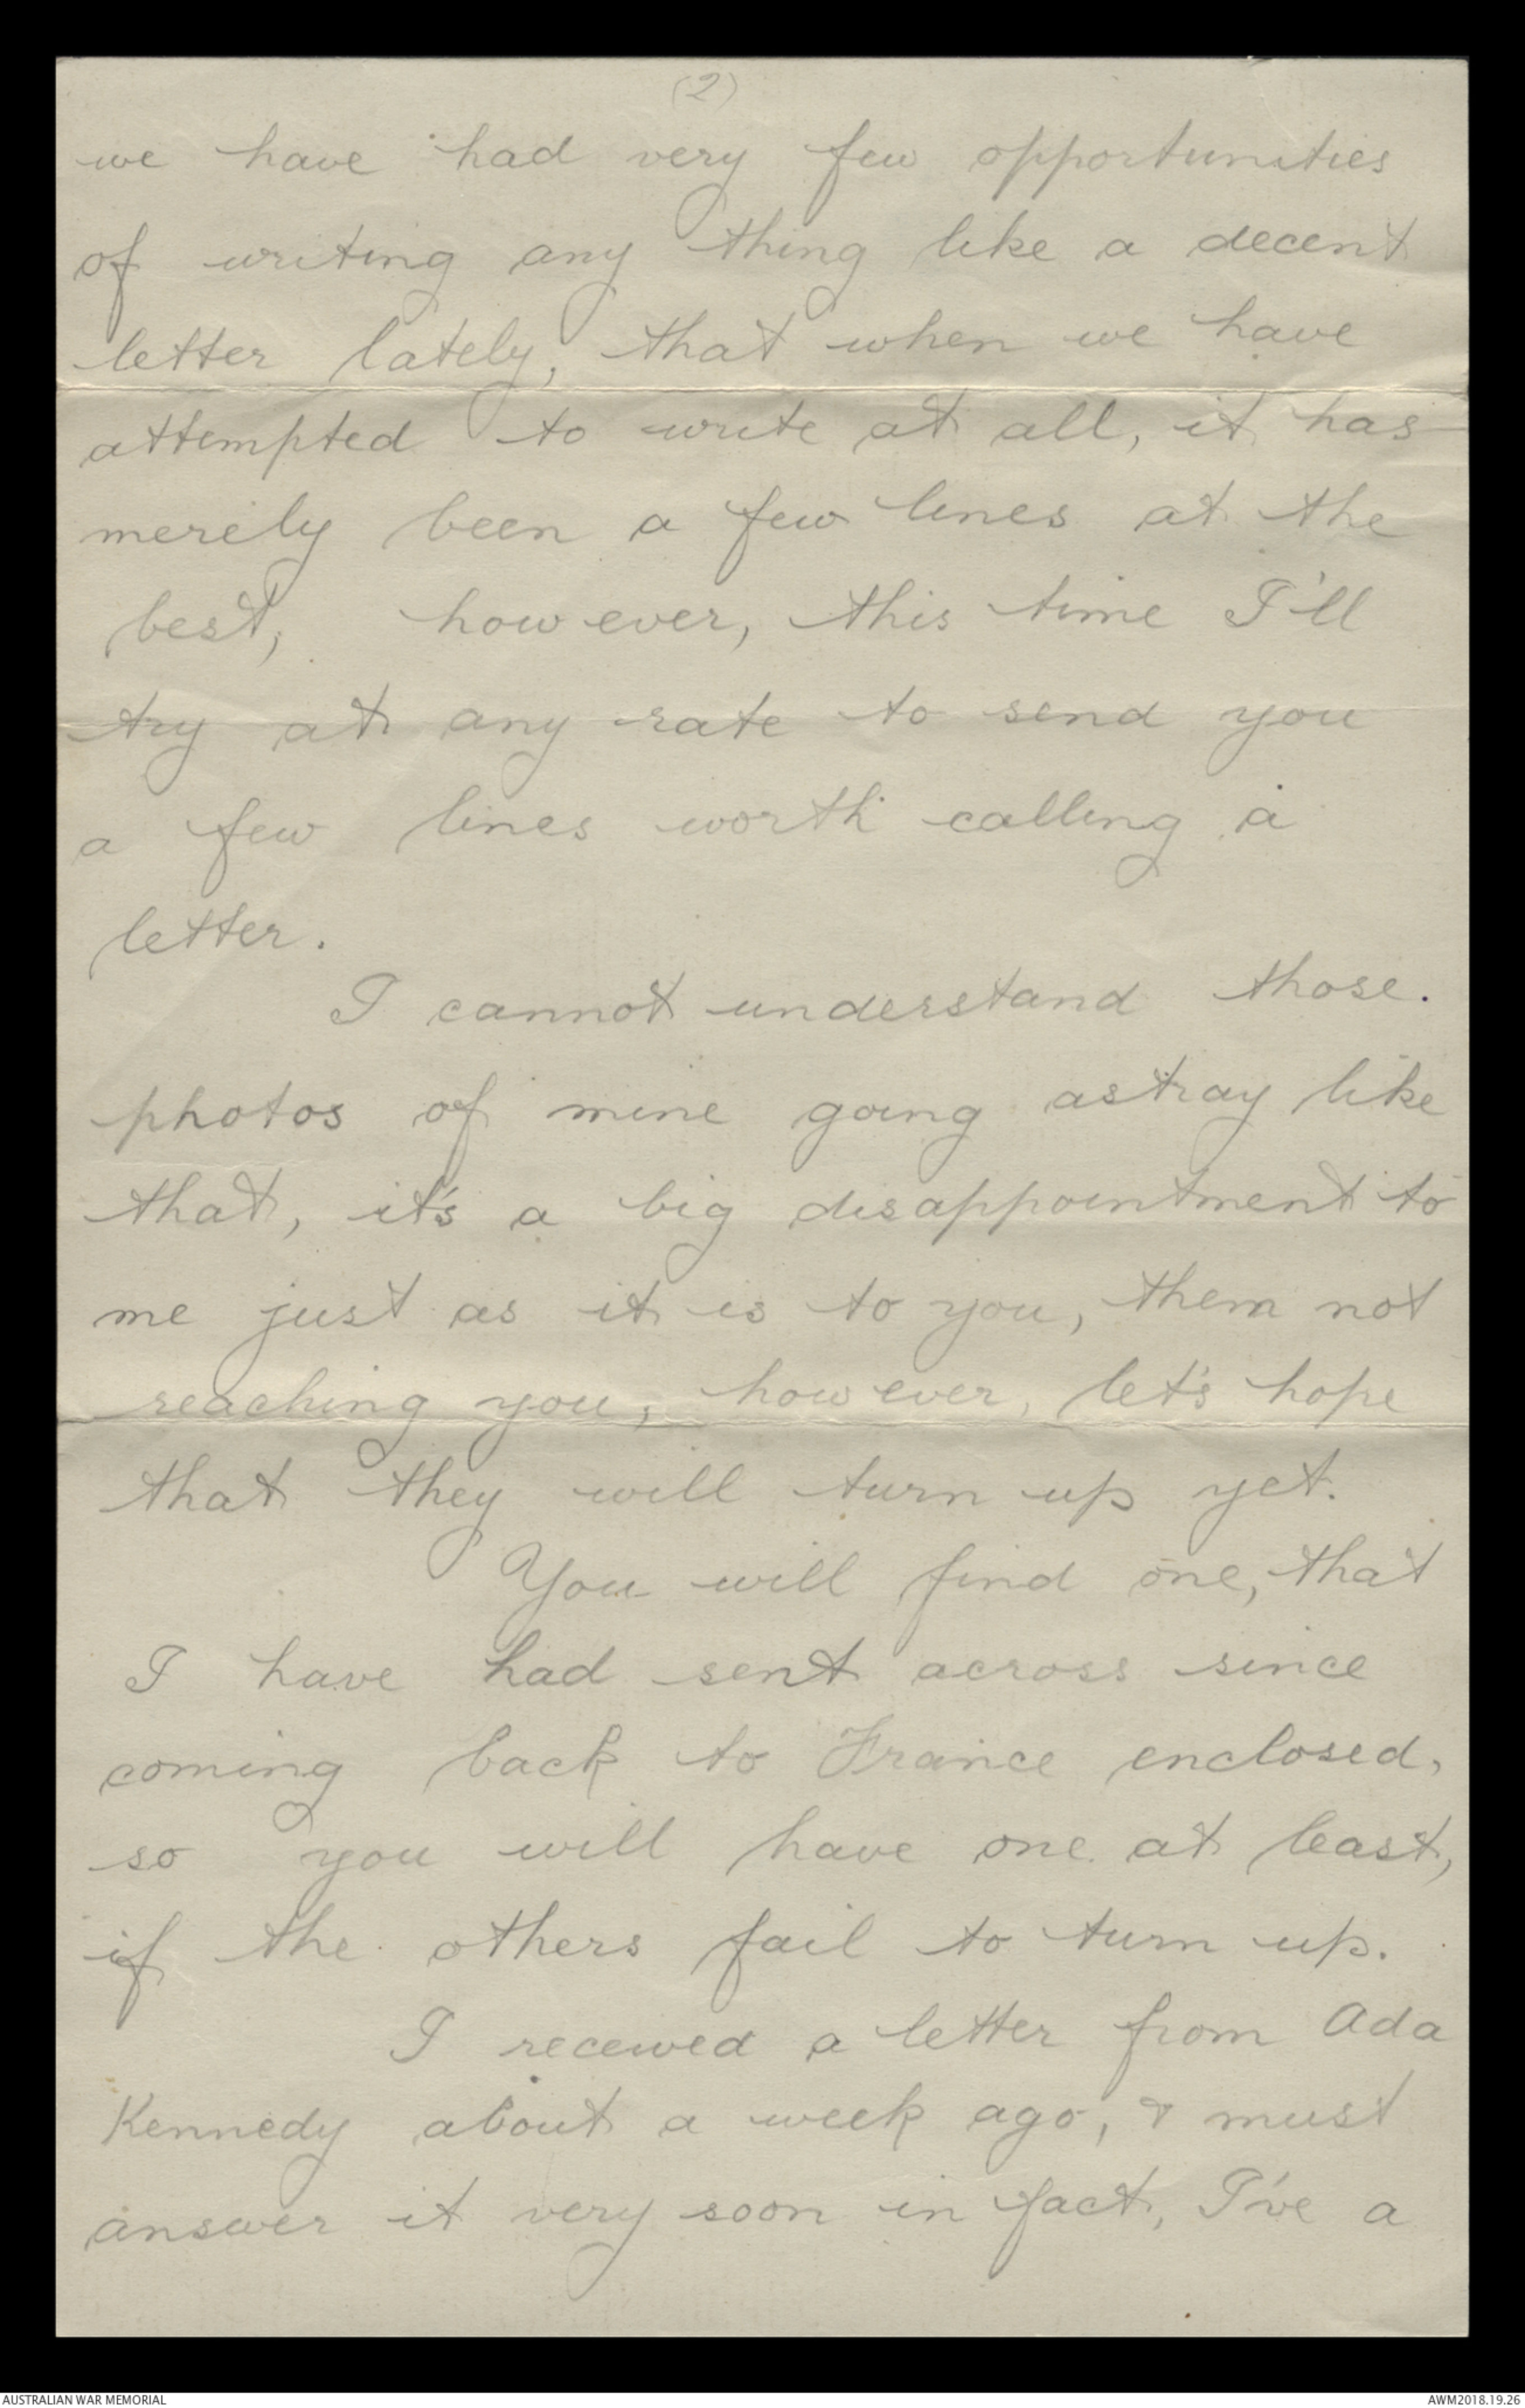 (2)
we have had very few opportunities
of writing any thing like a decent
letter lately, that when we have
attempted to write at all, it has
merely been a few lines at the
best, however, this time I'll
try at any rate to send you
a few lines worth calling a
letter.
I cannot understand those.
photos of mine going astray like
that, it's a big disappointment to
me just as it is to you, them not
reaching you, however, let's hope
that they will turn up yet.
You will find one, that
I have had sent across since
coming back to France enclosed,
so you will have one at least,
if the others fail to turn up.
I received a letter from Ada
Kennedy about a week ago, & must
answer it very soon in fact, I've a
AUSTRALIAN WAR MEMORIAL
AWM2018.19.26